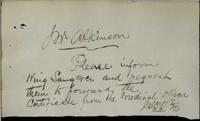 Mr Atkinson
Please inform
Wing Sang & Co and request
them to forward the
Certificate from the Medical Officer